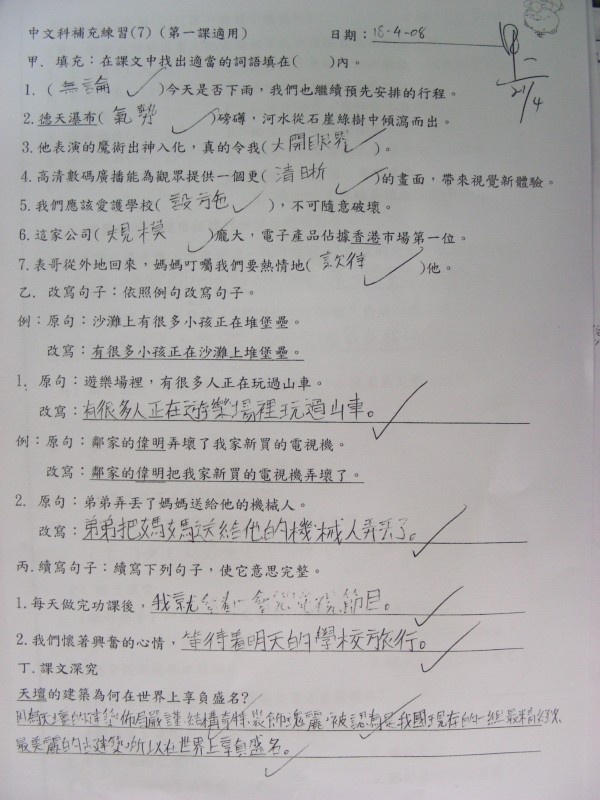 中文科補充練習(7)(第一課適用) 日期：18-4-08
甲．填充：在課文中找出適當的詞語填在( )內。
21/4
1. (無論)今天是否下雨，我們也繼續預先安排的行程。
2.德天瀑布(氣勢)磅礡，河水從石崖綠樹中傾瀉而出。
3.他表演的魔術出神入化，真的令我(大開眼界)。
4.高清數碼廣播能為觀眾提供一個更(清晰)的畫面，帶來視覺新體驗。
5.我們應該愛護學校(設施)，不可隨意破壞。
6.這家公司(規模)龐大，電子產品佔據香港市場第一位。
7.表哥從外地回來，媽媽叮囑我們要熱情地(款待)他。
乙．改寫句子：依照例句改寫句子。
例：原句：沙灘上有很多小孩正在堆堡壘。
改寫：有很多小孩正在沙灘上堆堡壘。
1. 原句：遊樂場裡，有很多人正在玩過山車。
改寫：有很多人正在遊樂場裡玩過山車。
例：原句：鄰家的偉明弄壞了我家新買的電視機。
改寫：鄰家的偉明把我家新買的電視機弄壞了。
2. 原句：弟弟弄丟了媽媽送給他的機械人。
改寫：弟弟把媽媽送給他的機械人弄丟了。
丙．續寫句子：續寫下列句子，使它意思完整。
1.每天做完功課後，我就會看一會兒電視節目。
2.我們懷著興奮的心情，等待着明天的學校旅行。
丁．課文深究
天壇的建築為何在世界上享負盛名?
因為天壇的建築佈局嚴謹、結構奇特、裝飾瑰麗，被認為是我國現存的一組最精緻、
最美麗的古建築，所以在世界上享負盛名。